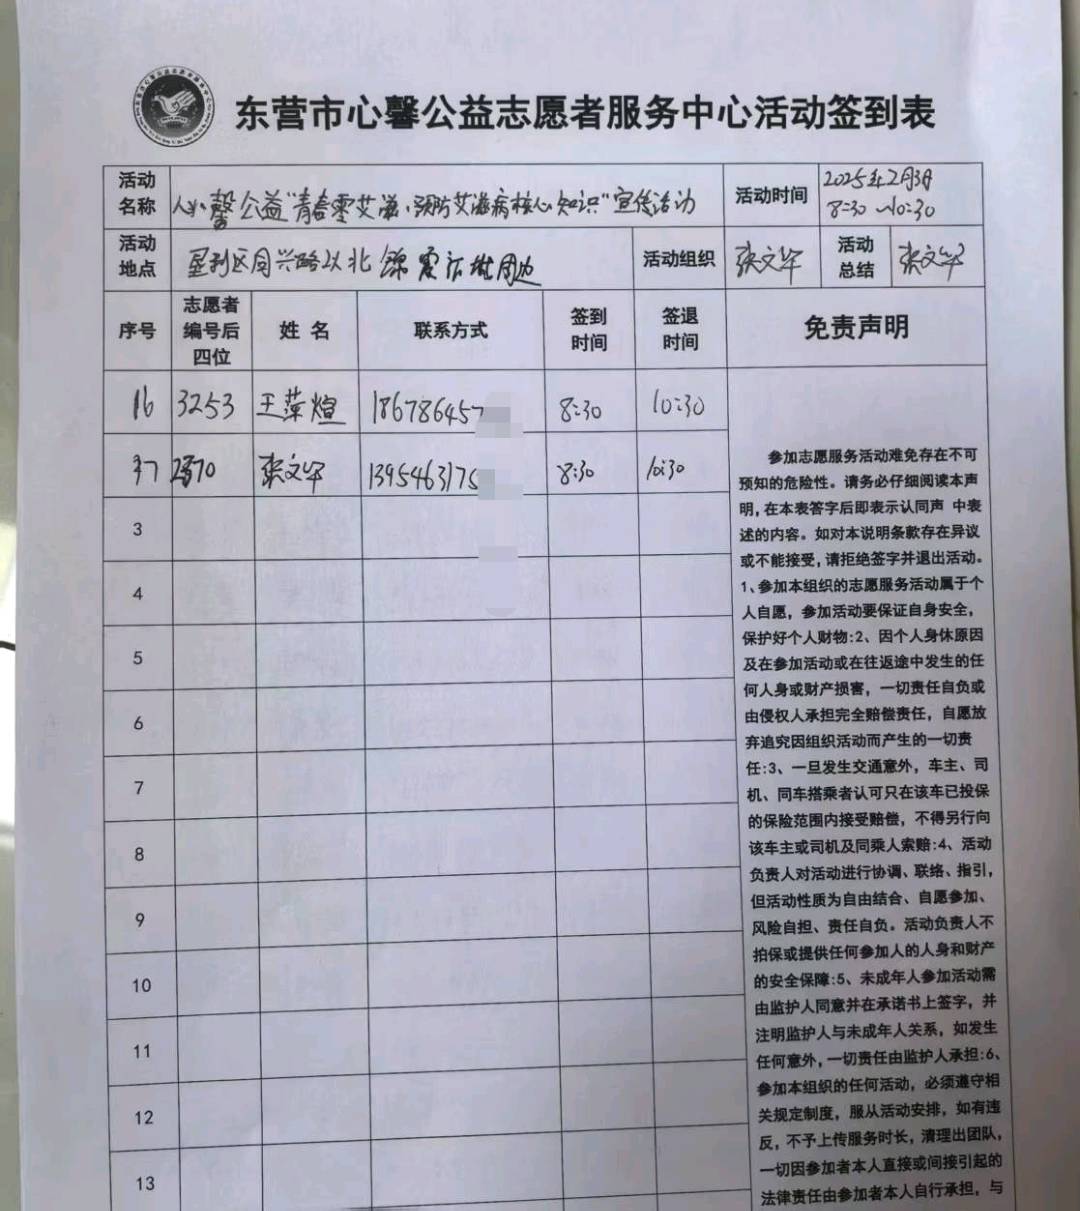 东营市心馨公益志愿者服务中心活动签到表
活动名称
心馨公益"青春零艾滋,预防艾滋病核心知识"宣传活动
活动时间
2025年2月3日
8:30~10:30
活动地点
垦利区同兴路以北
周边
活动组织
张文华
活动总结
张文华
序号
志愿者编号后四位
姓 名
联系方式
签到时间
签退时间
免责声明
16 3253 王萍煊 186786457 8:30 10:30
70 张文华 1395463175 8:30 10:30
3
4
5
6
7
8
9
10
11
12
13
参加志愿服务活动难免存在不可
预知的危险性。请务必仔细阅读本声
明,在本表答字后即表示认同声 中表
述的内容。如对本说明条款存在异议
或不能接受,请拒绝签字并退出活动。
1、参加本组织的志愿服务活动属于个
人自愿,参加活动要保证自身安全,
保护好个人财物:2、因个人身休原因
及在参加活动或在往返途中发生的任
何人身或财产损害,一切责任自负或
由侵权人承担完全赔偿责任,自愿放
弃追究因组织活动而产生的一切责
任:3、一旦发生交通意外,车主、司
机、同车搭乘者认可只在该车已投保
的保险范围内接受赔偿,不得另行向
该车主或司机及同乘人索赔:4、活动
负责人对活动进行协调、联络、指引,
但活动性质为自由结合、自愿参加、
风险自担、责任自负。活动负责人不
拍保或提供任何参加人的人身和财产
的安全保障:5、未成年人参加活动需
由监护人同意并在承诺书上签字,并
注明监护人与未成年人关系,如发生
任何意外,一切责任由监护人承担:6、
参加本组织的任何活动,必须遵守相
关规定制度,服从活动安排,如有违
反,不予上传服务时长,清理出团队,
一切因参加者本人直接或间接引起的
法律责任由参加者本人自行承担,与